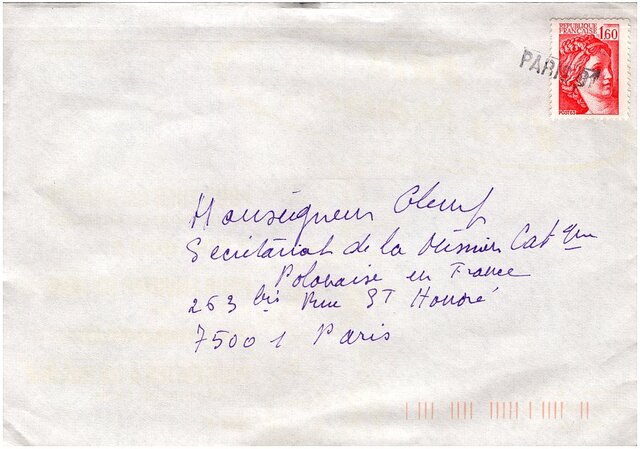 REPUBLIQUE
FRANCAISE 1,60
POSTES
PARIS
Monseigneur
Secrétariat de la Mission Catque
Polonaise en France
263 bis Rue ST Honoré
75001 Paris